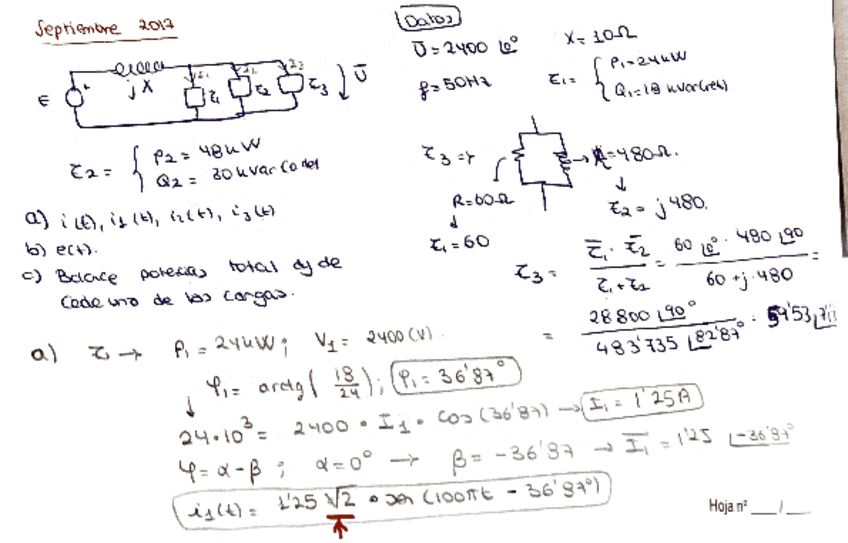 Septiembre 2017
Datos
Ū = 2400 |0°
X = 10Ω
f = 50Hz
Z̄1 = { P1 = 24kW
Q1 = 18 kvar (ret)
E
+
jX
I1 I2 I3
Z̄1
Z̄2
Z̄3
Ū
Z̄2 = { P2 = 48kW
Q2 = 30 kvar (
Z̄3 =>
R=60Ω
=480Ω.
Z̄1 = 60
Z̄2 = j480.
a) i(t), i1(t), i2(t), i3(t)
b) e(t).
c) Balance potencias total y de
cada uno de las cargas.
Z̄3 = Z̄1 · Z̄2 / Z̄1 + Z̄2 = 60 |0° · 480 |90 / 60 + j·480 =
= 28800 |90° / 483'735 |82'87° = 59'53 |7'1
a) Z̄1 → P1 = 24kW ; V1 = 2400 (V).
φ1 = arctg( 18/24 ); φ1 = 36'87°
24·10³ = 2400 · I1 · cos (36'87) → I1 = 1'25A
φ = α - β ; α = 0° → β = -36'87 → Ī1 = 1'25 |-36'87°
i1(t) = 1'25 √2 · sen (100πt - 36'87°)
Hoja nº ___/___